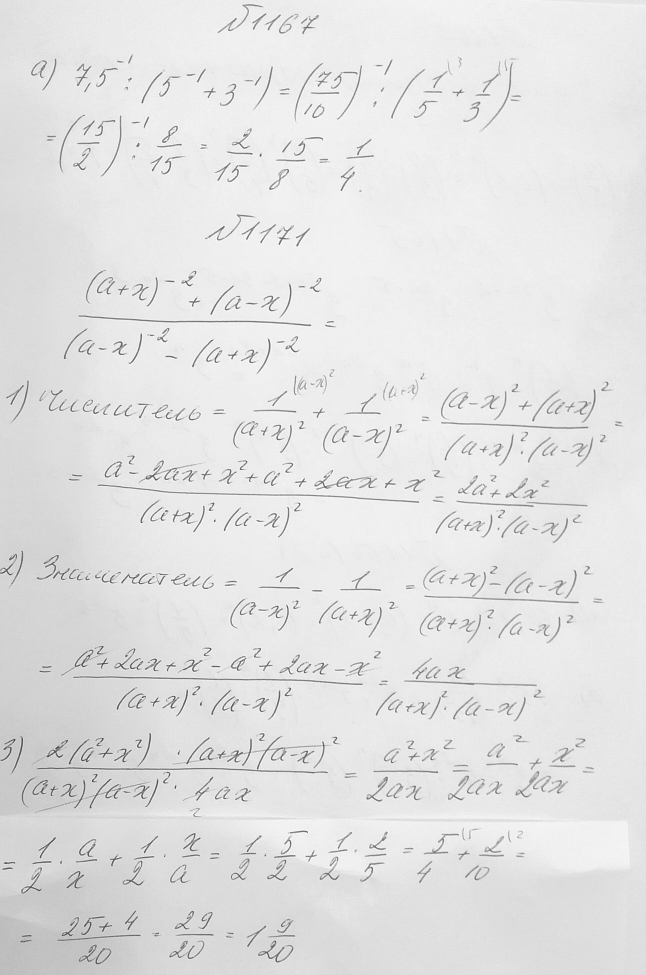 №1167
а) 7,5⁻¹ : (5⁻¹ + 3⁻¹) = (75/10)⁻¹ : (1/5 \3 + 1/3 \5) =
= (15/2)⁻¹ : 8/15 = 2/15 · 15/8 = 1/4.
№1171
((a+x)⁻² + (a-x)⁻²)/((a-x)⁻² - (a+x)⁻²) =
1) Числитель = 1/(a+x)² \(a-x)² + 1/(a-x)² \(a+x)² = ((a-x)² + (a+x)²)/((a+x)² · (a-x)²) =
= (a² - 2ax + x² + a² + 2ax + x²)/((a+x)² · (a-x)²) = (2a² + 2x²)/((a+x)² · (a-x)²)
2) Знаменатель = 1/(a-x)² - 1/(a+x)² = ((a+x)² - (a-x)²)/((a+x)² · (a-x)²) =
= (a² + 2ax + x² - a² + 2ax - x²)/((a+x)² · (a-x)²) = 4ax/((a+x)² · (a-x)²)
3) (2(a² + x²) · (a+x)² (a-x)²)/((a+x)² (a-x)² · 4ax) 2 = (a² + x²)/2ax = a²/2ax + x²/2ax =
= 1/2 · a/x + 1/2 · x/a = 1/2 · 5/2 + 1/2 · 2/5 = 5/4 \5 + 2/10 \2 =
= (25 + 4)/20 = 29/20 = 1 9/20